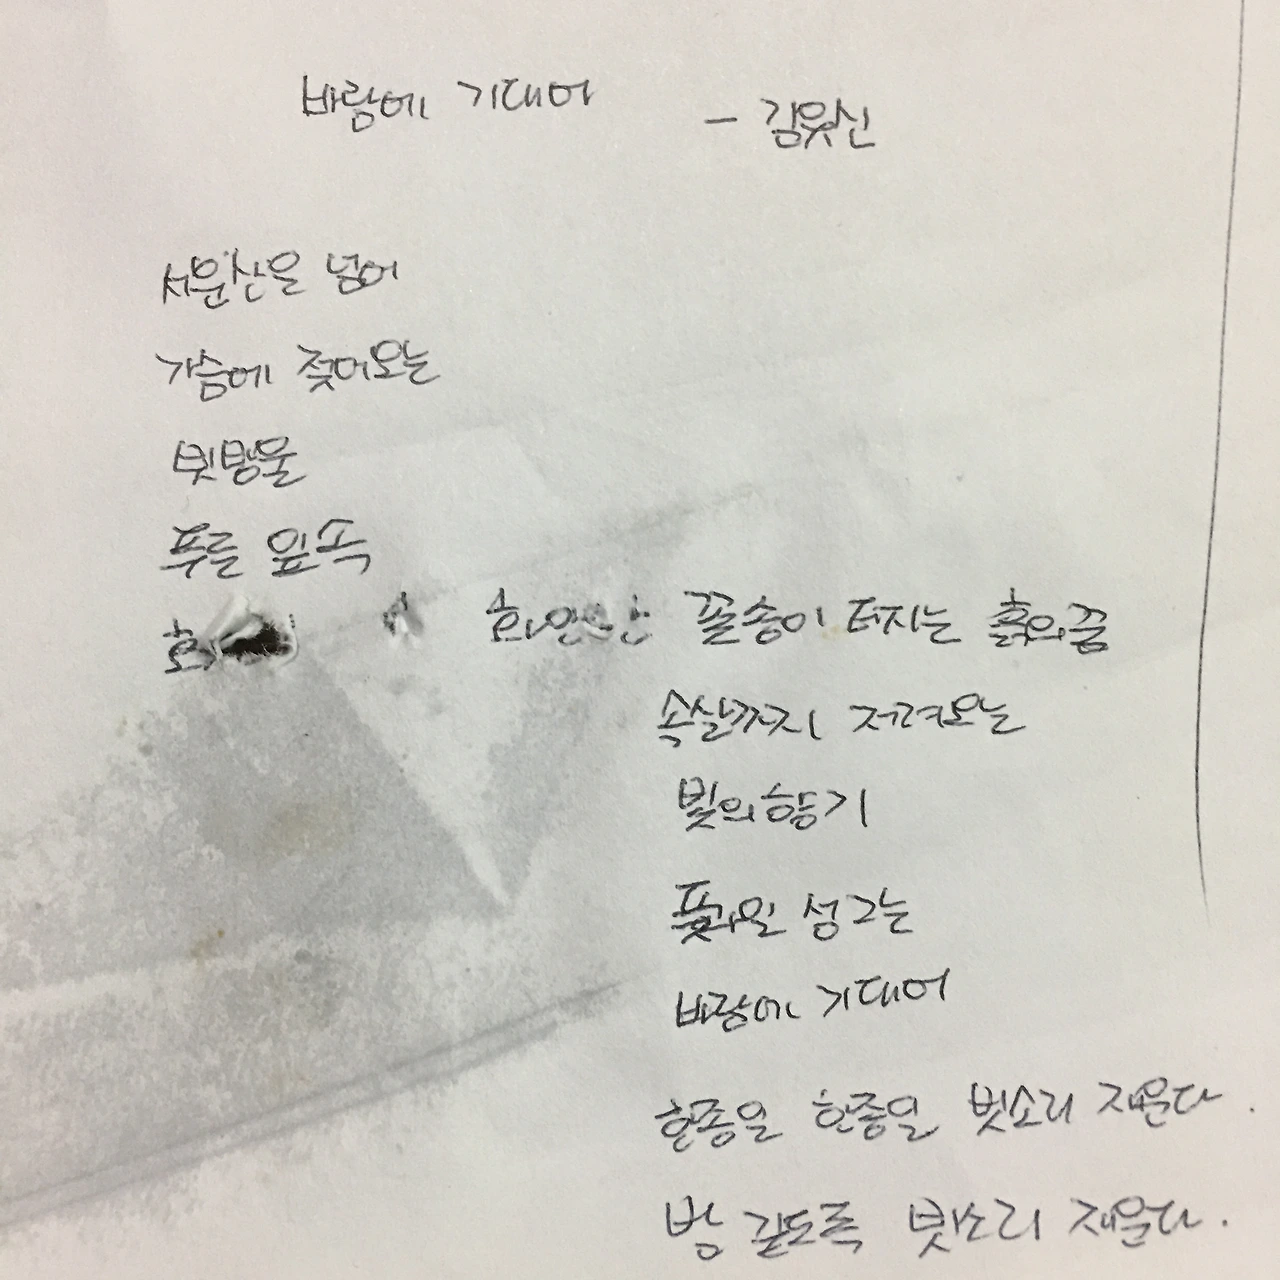 바람에 기대어
- 김웟신
서문산을 넘어
가슴에 젖어오는
빗방울
푸른 잎속
화안한 꽃송이 터지는 흙의꿈
속살까지 저려오는
빛의향기
풋과일 성그는
바람에 기대어
한종일 한종일 빗소리 재운다.
밤 깊도록 빗소리 재운다.